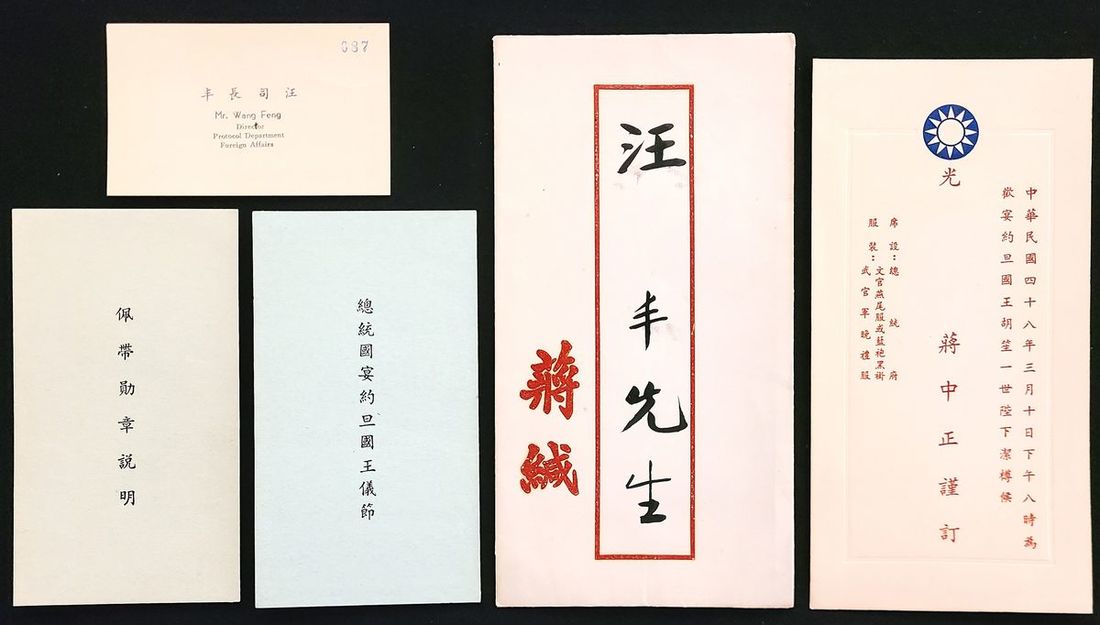 汪司長丰
Mr. Wang Feng
Director
Protocol Department
Foreign Affairs
佩帶勛章説明
總統國宴約旦國王儀節
汪丰先生
蔣緘
中華民國四十八年三月十日下午八時為
歡宴約旦國王胡笙一世陛下潔樽候
光
蔣中正謹訂
席設：總統府
服裝：文官燕尾服或藍袍黑褂
武官軍晚禮服